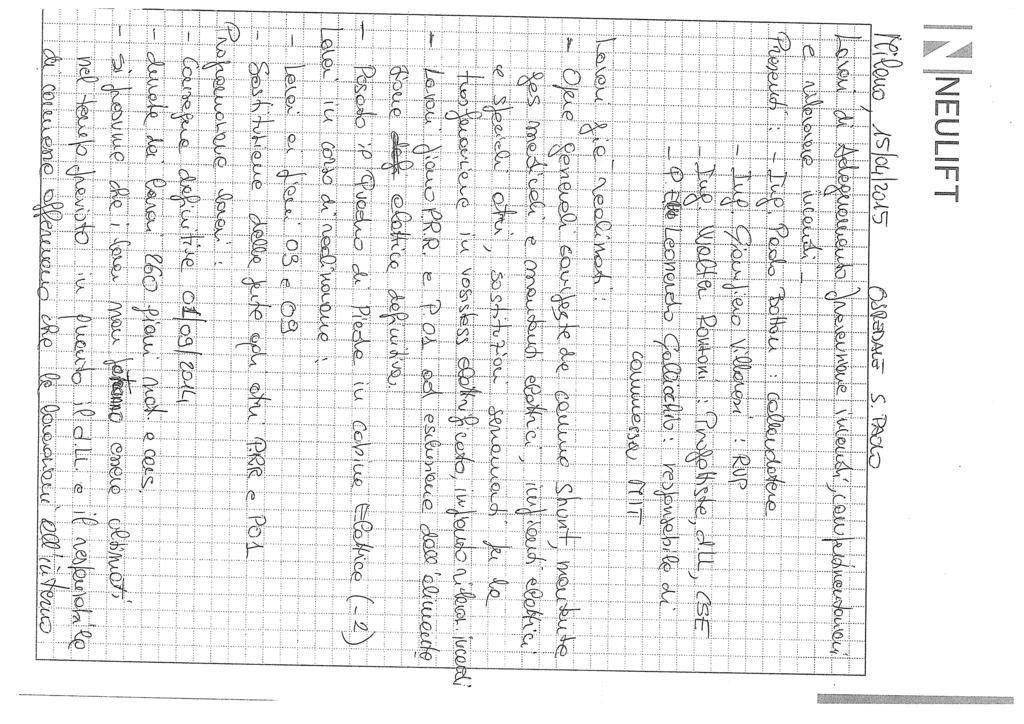 NEULIFT
Milano, 15/04/2015 OSPEDALE S. PAOLO
Lavori di Adeguamento prevenzione incendi, compartimentazioni
e rilevazione incendi
Presenti: - Ing. Paolo Bottini : collaudatore
- Ing. Gianpiero Villongi : RUP
- Ing. Walter Pontoni : Progettista, d.LL, CSE
- Leonardo Gallicchio : responsabile di
commessa MIT
Lavori già realizzati:
- Opere generali
gas medicali e montanti elettrici, impianti elettrici
e speciali atri, sostituzioni serramenti
trasformazione in elettrificato, impianto rilev. incendi
- Lavori piano PRR. e P01 ad esclusione dell'alimenta
zione elettrica definitiva,
- Posato il Quadro di Piede in cabina Elettrica (-2)
Lavori in corso di realizzazione :
- Lavori ai piani 03 e 09
- Sostituzione delle porte agli atri PRR e P01
Programmazione lavori :
- Consegna definitiva 01/09/2014
- durata dei lavori 260 giorni nat. e cons.
- si presume che i lavori non potranno essere ultimati
nel tempo previsto in quanto il d.LL e il responsabile
di commessa affermano che le lavorazioni all'interno